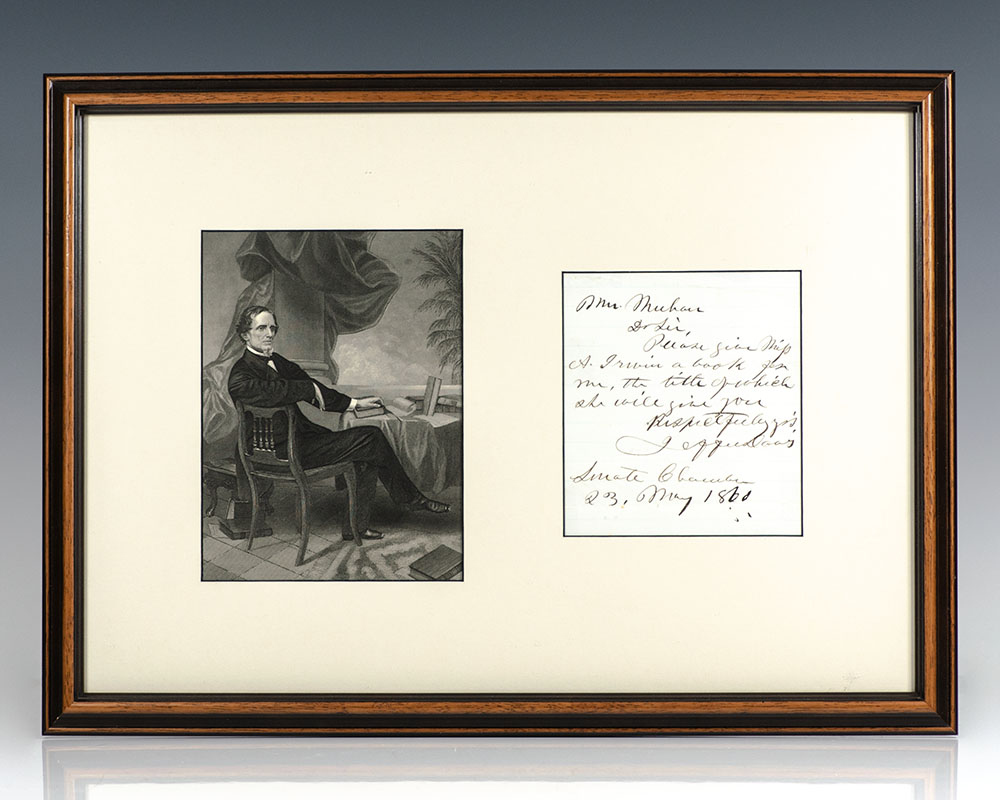 Mr. Meehan
Dr Sir,
Please give Miss
A. Irwin a book for
me, the title of which
she will give you
Respectfully yrs,
Jeffn Davis
Senate Chamber
23, May 1860